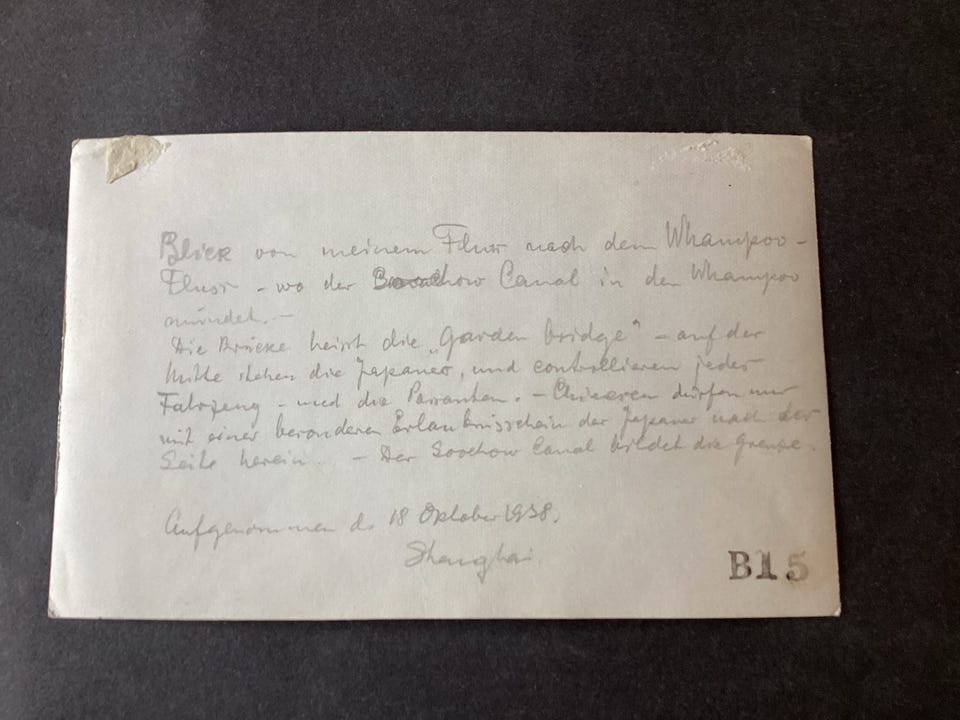 Blick von meinem Fluss nach dem Whampoo-
Fluss - wo der Soochow Canal in den Whampoo
mündet. -
Die Brücke heisst die "Garden bridge" - auf der
Mitte stehen die Japaner, und controllieren jedes
Fahrzeug - und die Passanten. - Chinesen dürfen nur
mit einer besonderen Erlaubnisschein der Japaner nach der
Seite herein. - Der Soochow Canal bildet die Grenze.
Aufgenommen d. 18 Oktober 1938.
Shanghai.
B15